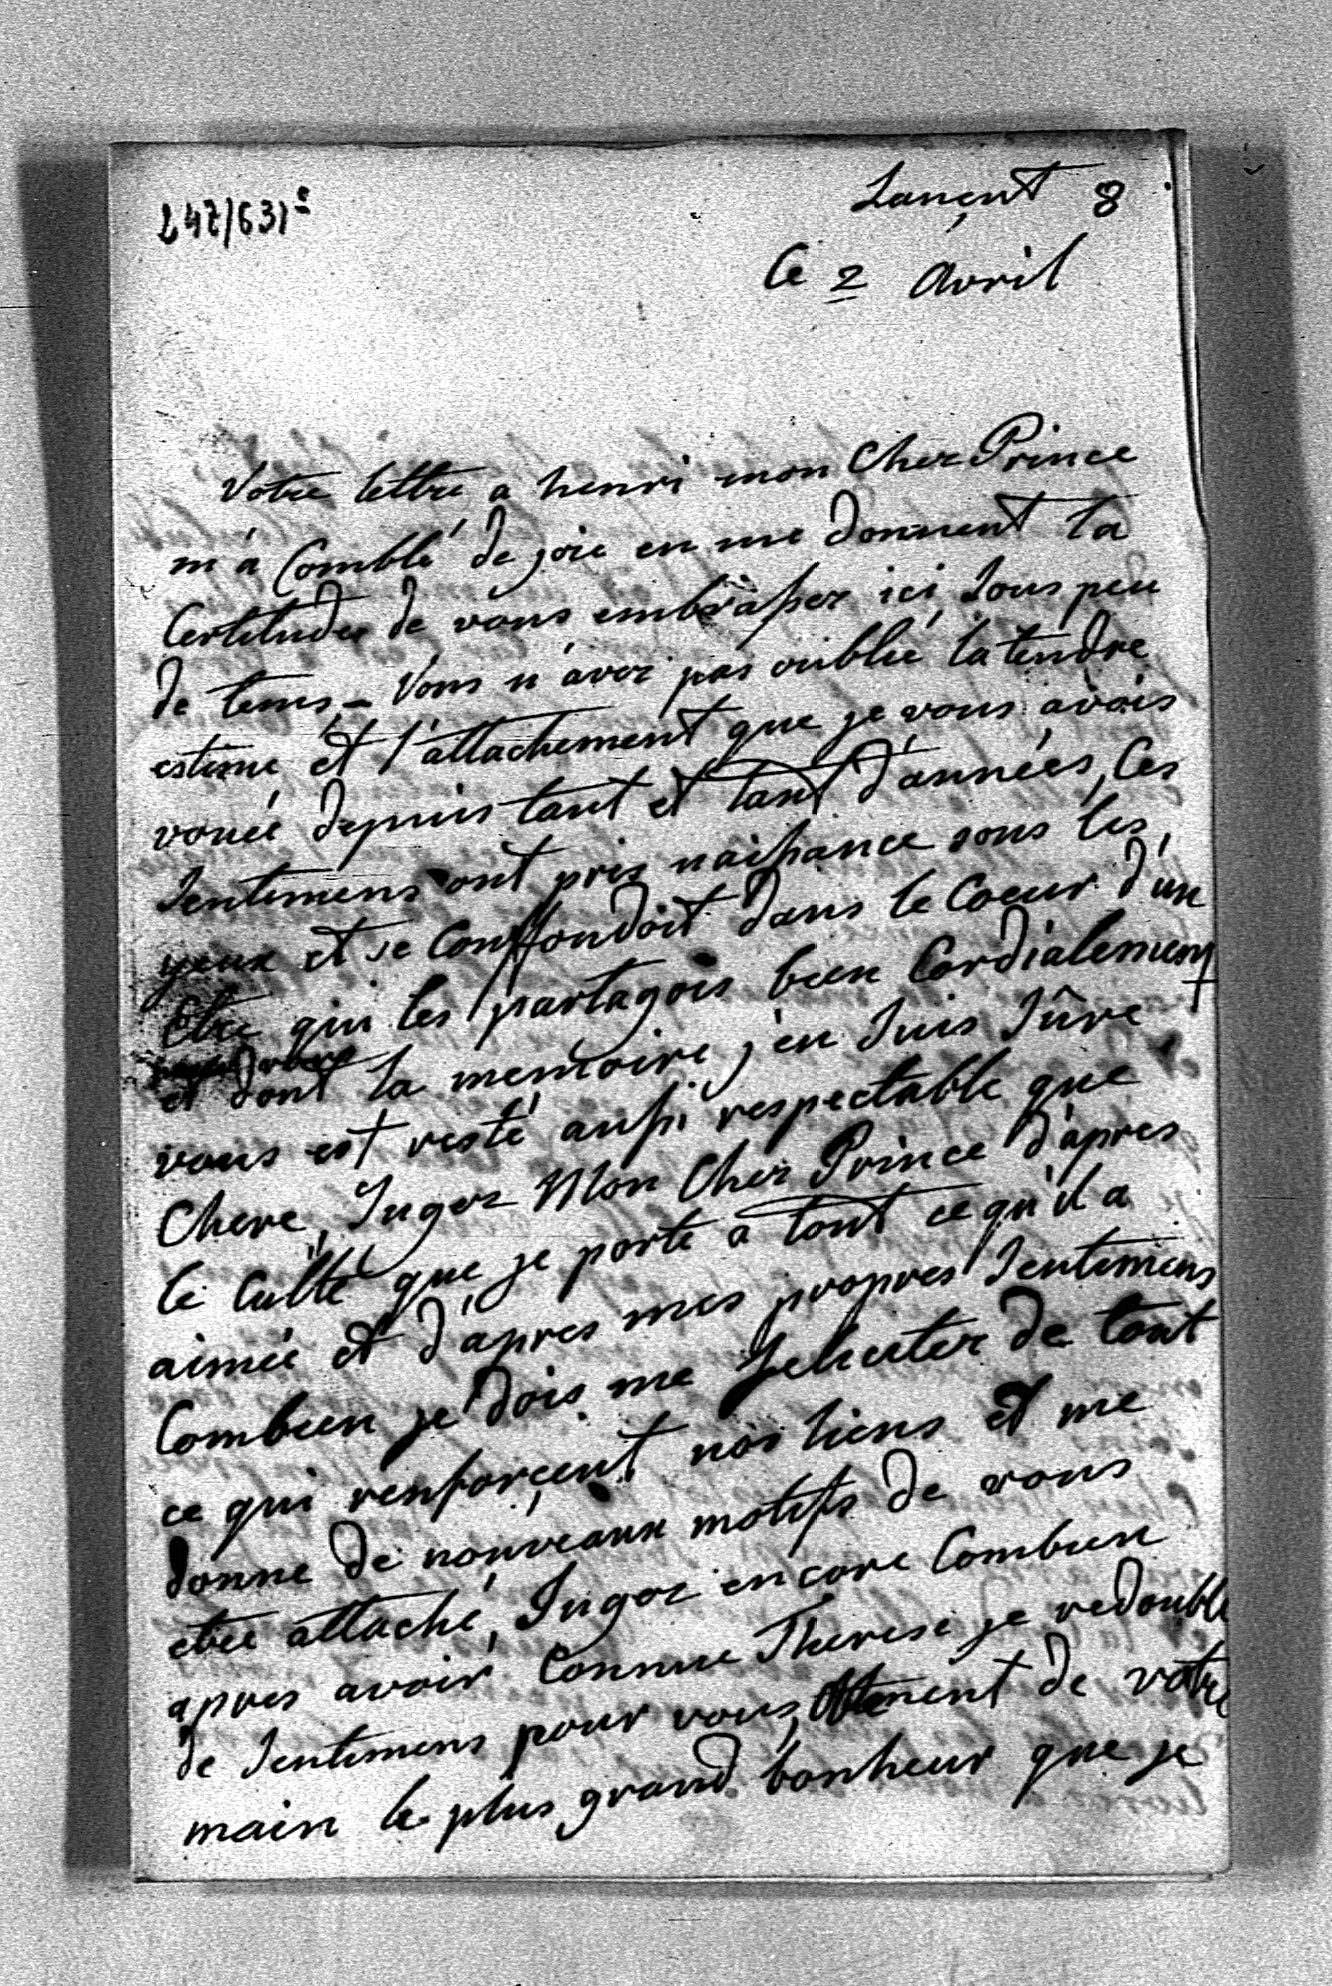 247/631
Lançut 8
Ce 2 Avril
Votre lettre a henri mon Cher Prince
m'a Comblé de joie en me donnent la
Certitude de vous embrasser ici sous peu
de tems – Vous n'avez pas oublié la tendre
estime et l'attachement que je vous avois
voué depuis tant et tant d'années, Ces
Sentimens ont pris naissance sous les
yeux et se Conffondoit dans le Coeur d'un
Etre qui les partagois bien Cordialement
et dont la memoire, j'en suis sûre
vous est resté aussi respectable que
Chere, Jugez Mon Cher Prince d'après
le Culte que je porte a tout ce qu'il a
aimée et d'après mes propres Sentimens
Combien je dois me feliciter de tout
ce qui renforçent nos liens et me
donne de nouveaux motifs de vous
etre attaché, Jugez encore Combien
apres avoir Connue Therese je redouble
de Sentimens pour vous, Ottenent de votre
main le plus grand bonheur que je